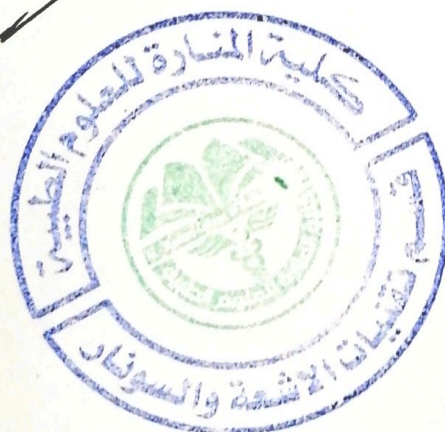 كلية المنارة للعلوم الطبية
قسم تقنيات الاشعة والسونار